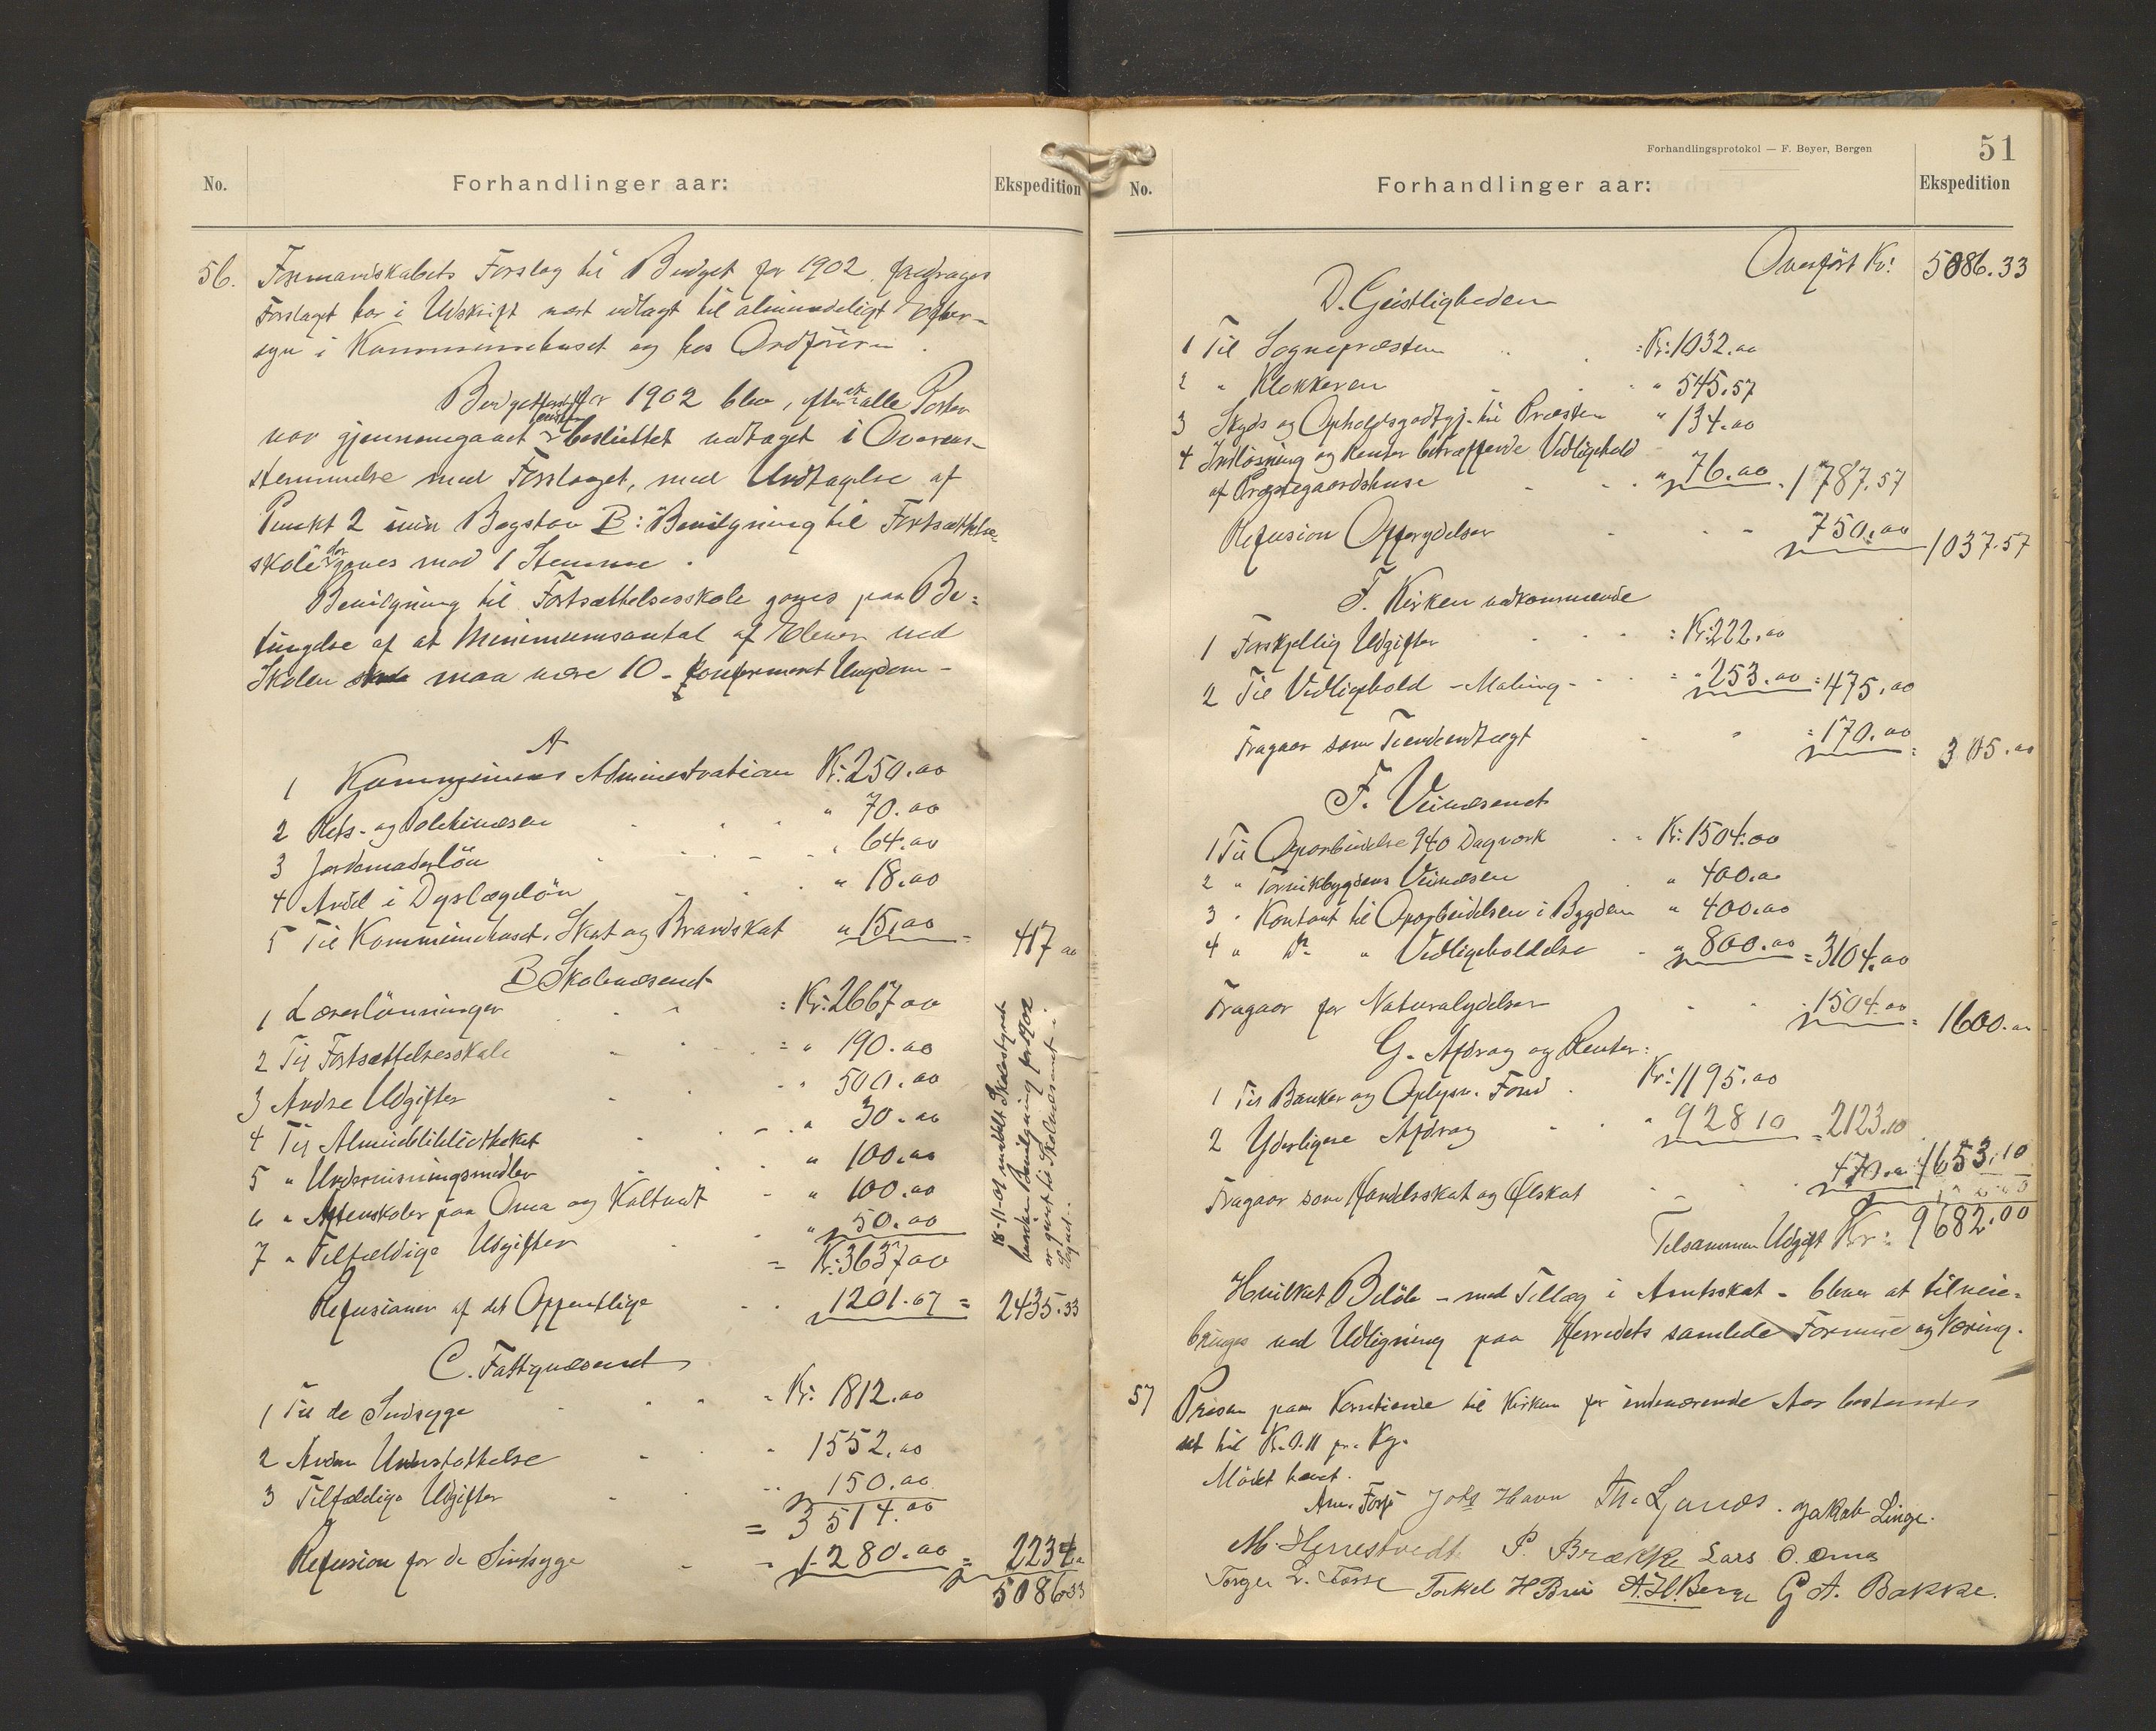 No.
Forhandlinger aar:
Ekspedition
56. Formandskabets Forslag til Budget for 1902 foredrages
Forslaget har i Udskrift vært udlagt til almindeligt Efter-
syn i Kommunehuset og hos Ordføreren.
Budgettet for 1902 blev, efter at alle Poster
var gjennemgaaet besluttet vedtaget i Overens-
stemmelse med Forslaget, med Undtagelse af
Punkt 2 Bogstav B: Bevilgning til Fortsættelses-
skole der gaves mod 1 Stemme.
Bevilgning til Fortsættelsesskole gaves paa Be-
tingelse af at Minimumsantal af Elever ved
Skolen maa være 10 - konfirmeret Ungdom -
A
1 Kommunens Administration Kr: 250.00
2 Rets- og Politivæsen " 70.00
3 Jordemoderløn " 64.00
4 Andel i Dyrlægeløn " 18.00
5 Til Kommunehuset, Skat og Brandskat " 15.00 = 417 00
B Skolevæsenet
1 Lærerlønninger = Kr: 2667 00
2 Til Fortsættelsesskole = " 190.00
3 Andre Udgifter " 500.00
4 Til Almuebibliotheket " 30.00
5 " Undervisningsmidler " 100.00
6 " Aftenskoler paa Oma og Kaltvedt " 100.00
7 " Tilfældige Udgifter " 50.00
= Kr: 3637 00
Refusioner af det Offentlige 1201.67 = 2435.33
18-11-01 meddelt Skolestyret
hvordan Bevilgning for 1902
er gjort til Skolevæsenet i
Sognet.
C. Fattigvæsenet
1 Til de Sindsyge Kr: 1812.00
2 Anden Understøttelse 1552.00
3 Tilfældige Udgifter 150.00
= 3514.00
Refusion for de Sindsyge 1280.00 = 2234.00
5086.33
Forhandlingsprotokol — F. Beyer, Bergen
51
No.
Forhandlinger aar:
Ekspedition
Overført Kr: 5086.33
D. Geistligheden
1 Til Sognepræsten = Kr: 1032.00
2 " Klokkeren " 545.57
3 Skyds og Opholdsgodtgj. til Præsten " 134.00
4 Indløsning og Renter beträffende Vedligehold
af Præstegaardshuse " 76.00 = 1787.57
Refusion Offerydelser 750.00 1037.57
F. Kirken vedkommende
1 Forskjellig Udgifter = Kr: 222.00
2 Til Vedligehold - Maling - = " 253.00 = 475.00
Fragaar som Tiendeindtægt = 170.00 = 305.00
F. Veivæsenet
1 Til Oparbeidelse 940 Dagverk Kr: 1504.00
2 " Tørvikbygdens Veivæsen " 400.00
3 " Kontant til Oparbeidelsen i Bygden " 400.00
4 " Do " Vedligeholdelse " 800.00 = 3104.00
Fragaar for Naturalydelser 1504.00 = 1600.00
G. Afdrag og Renter:
1 Til Banker og Oplysn. Fond Kr: 1195.00
2 Yderligere Afdrag " 928 10 = 2123.10
Fragaar som Handelsskat og Ølskat 470.00 1653.10
Tilsammen Udgift Kr: 9682.00
Hvilket Beløb - med Tillæg i Amtsskat - bliver at tilveie-
bringes ved Udligning paa Herredets samlede Formue og Næring.
57 Prisen paa Korntiende til Kirken for indeværende Aar bestemtes
sat til Kr. 0.11 pr. Kg.
Mødet hævet.
Am. Fosse Johs Havn Th. Ljønes. Jakob Linge.
M. Herrestvedt P. Brække Lars O. Oma
Torger L. Fosse Torkel H Brei A. H. Berge G A. Bakke.